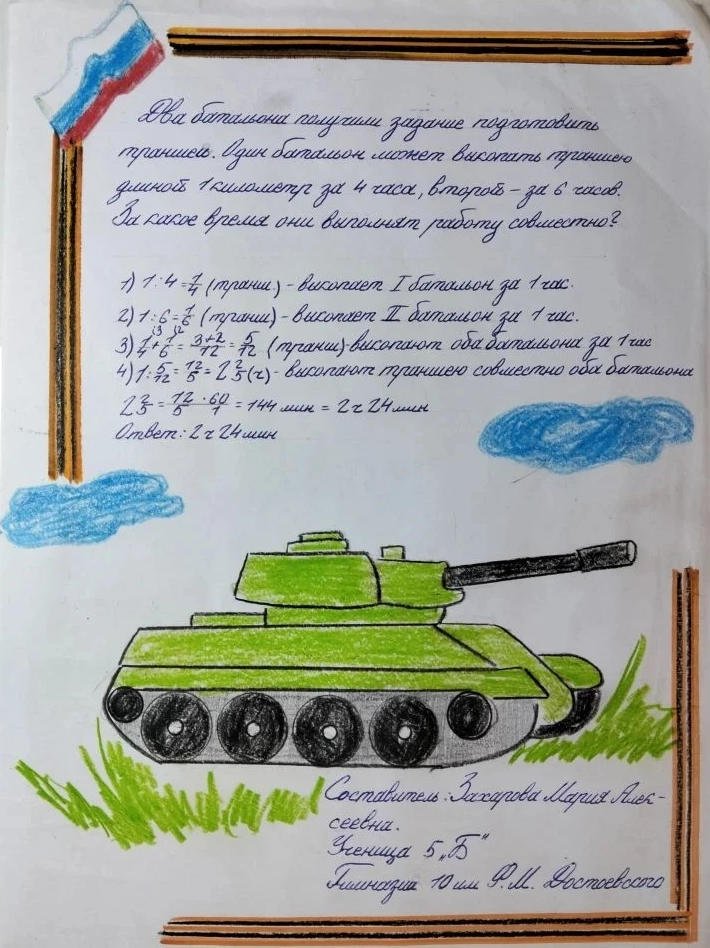 Два батальона получили задание подготовить
траншеи. Один батальон может выкопать траншею
длиной 1 километр за 4 часа, второй – за 6 часов.
За какое время они выполнят работу совместно?
1) 1:4=1/4 (транш) - выкопает I батальон за 1 час.
2) 1:6=1/6 (транш) - выкопает II батальон за 1 час.
3) 1/4 \3 + 1/6 \2 = 3+2/12 = 5/12 (транш) - выкопают оба батальона за 1 час
4) 1:5/12 = 12/5 = 2 2/5 (ч) - выкопают траншею совместно оба батальона
2 2/5 = 12·60/5·1 = 144 мин = 2 ч 24 мин
Ответ: 2 ч 24 мин
Составитель: Захарова Мария Алек-
сеевна.
Ученица 5 „Б"
Гимназии 10 им Ф.М. Достоевского